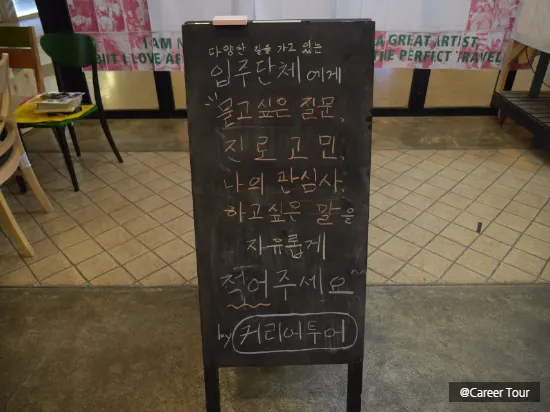 I AM
A GREAT ARTIST
BUT I LOVE
THE PERFECT TRAVEL
다양한 길을 가고 있는
입주단체에게
묻고싶은 질문,
진로고민,
나의 관심사,
하고싶은 말을
자유롭게
적어주세요^^
by 커리어투어
@Career Tour